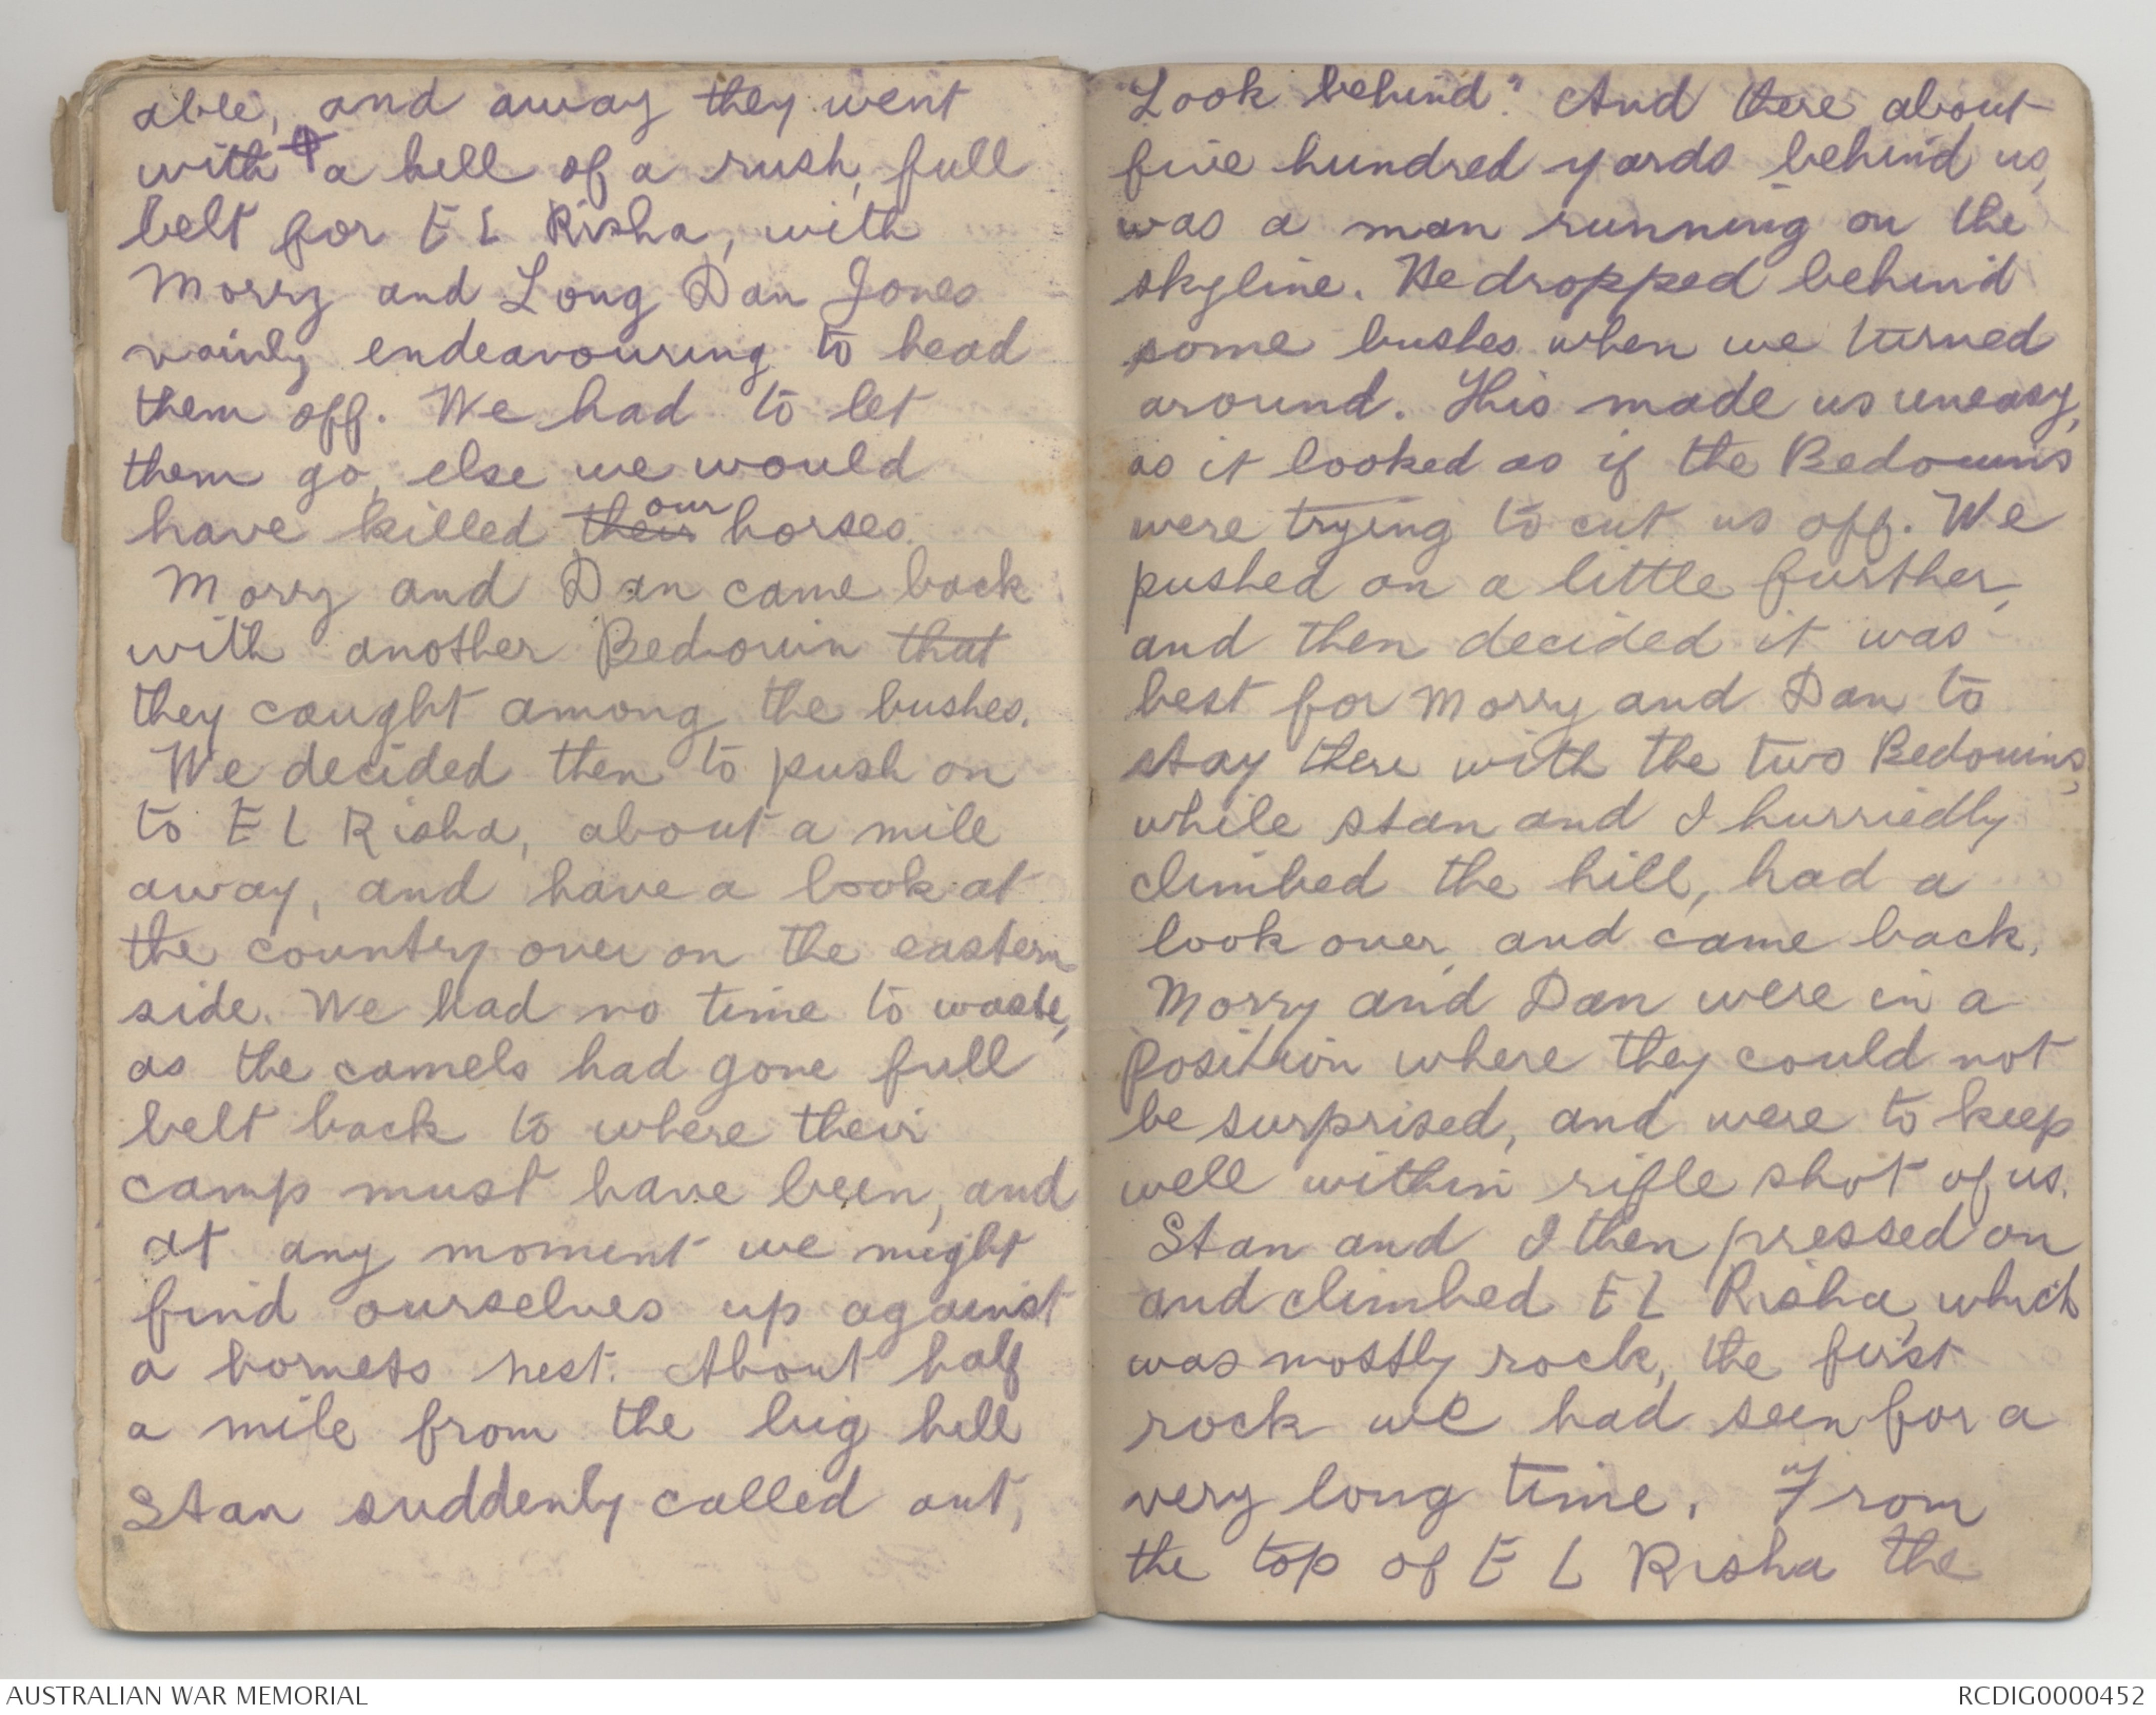 able, and away they went
with a hell of a rush, full
belt for EL Risha, with
Morry and Long Dan Jones
vainly endeavouring to head
them off. We had to let
them go, else we would
have killed their our horses.
Morry and Dan came back
with another Bedouin that
they caught among the bushes.
We decided then to push on
to EL Risha, about a mile
away, and have a look at
the country over on the eastern
side. We had no time to waste,
as the camels had gone full
belt back to where their
camp must have been, and
at any moment we might
find ourselves up against
a hornets nest. About half
a mile from the big hill
Stan suddenly called out,
"Look behind". And there about
five hundred yards behind us,
was a man running on the
skyline. He dropped behind
some bushes when we turned
around. This made us uneasy,
as it looked as if the Bedouins
were trying to cut us off. We
pushed on a little further,
and then decided it was
best for Morry and Dan to
stay there with the two Bedouins,
while Stan and I hurriedly
climbed the hill, had a
look over, and came back.
Morry and Dan were in a
position where they could not
be surprised, and were to keep
well within rifle shot of us.
Stan and I then pressed on
and climbed EL Risha, which
was mostly rock, the first
rock we had seen for a
very long time. From
the top of EL Risha the
AUSTRALIAN WAR MEMORIAL
RCDIG0000452